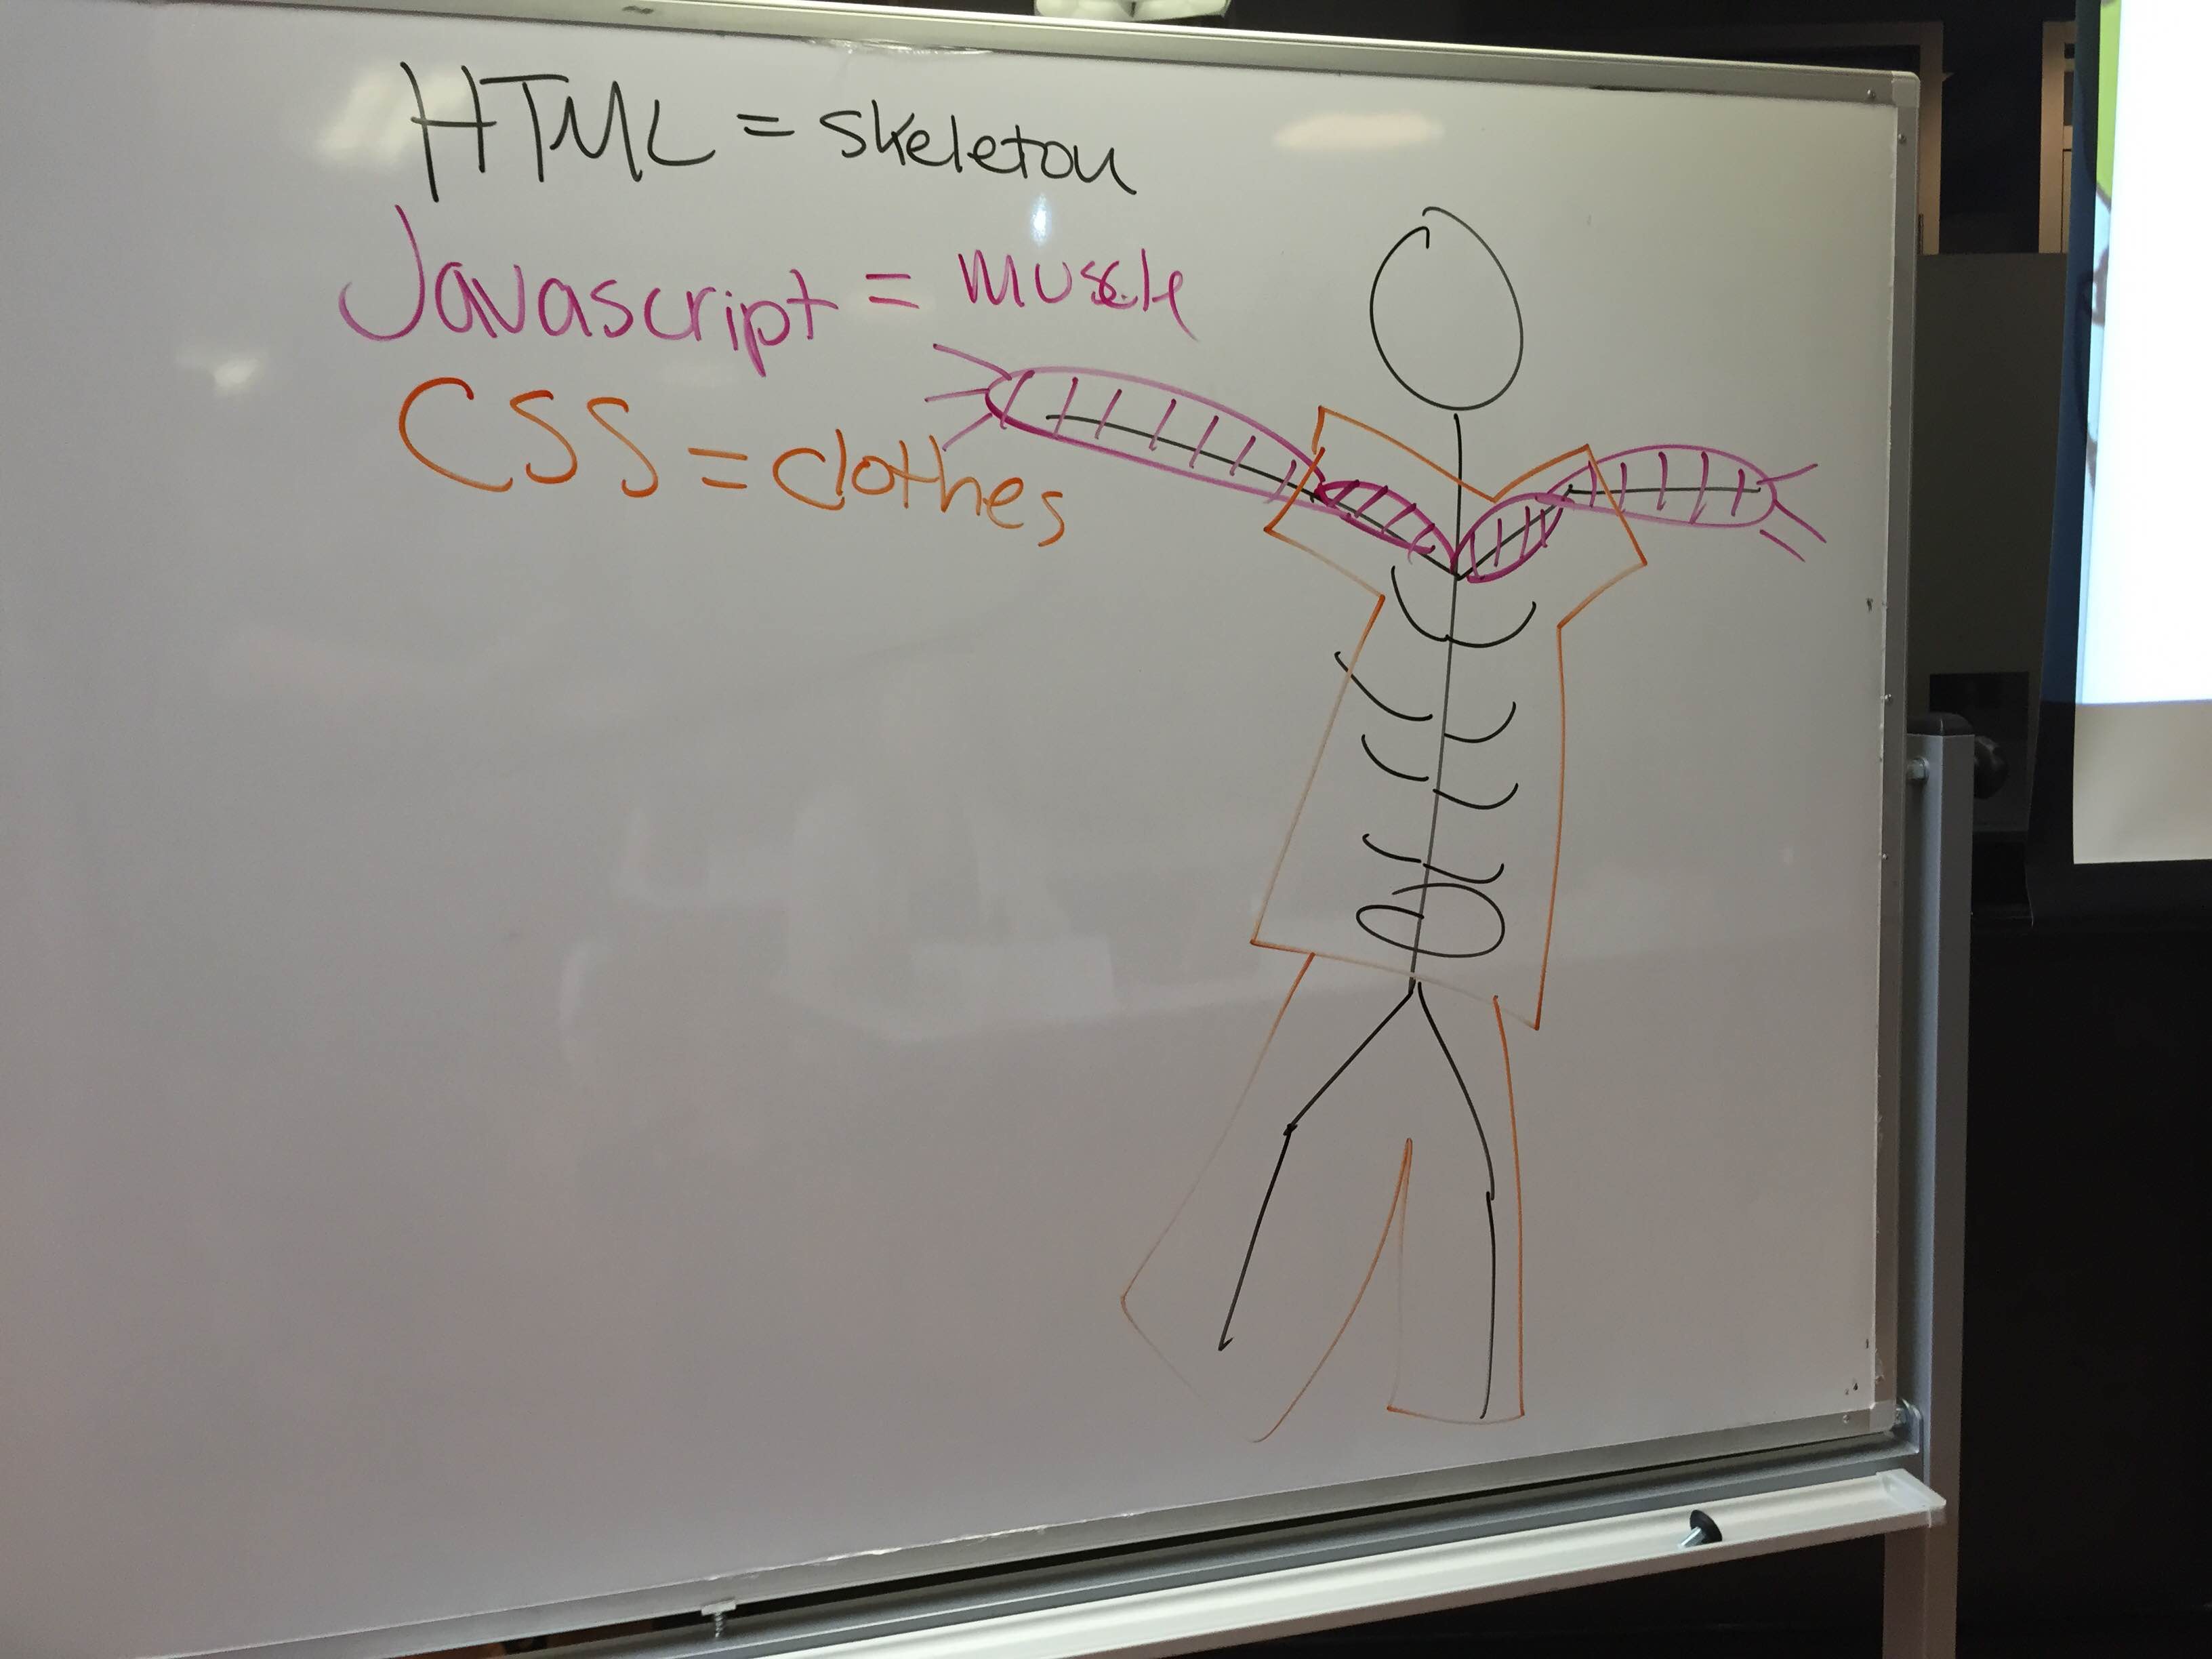 HTML = skeleton
Javascript = muscle
CSS = clothes